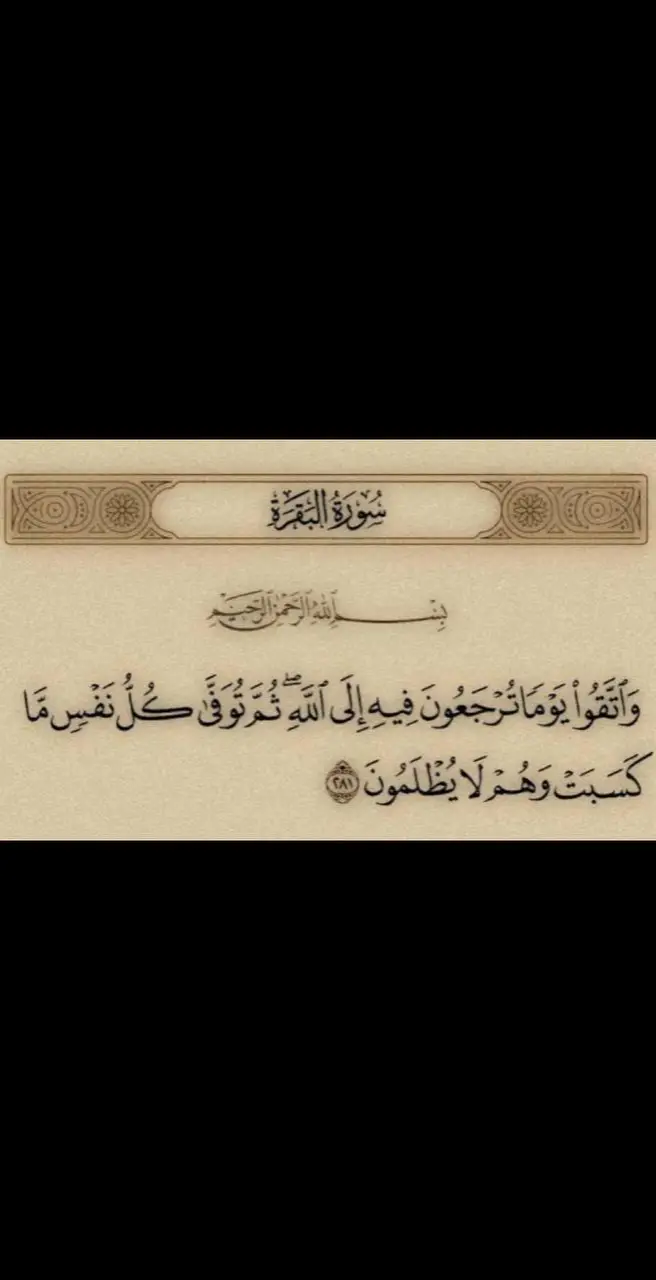 سُورَةُ البَقَرَةِ
بِسْمِ ٱللَّهِ ٱلرَّحْمَٰنِ ٱلرَّحِيمِ
وَٱتَّقُوا۟ يَوْمًا تُرْجَعُونَ فِيهِ إِلَى ٱللَّهِ ۖ ثُمَّ تُوَفَّىٰ كُلُّ نَفْسٍ مَّا
كَسَبَتْ وَهُمْ لَا يُظْلَمُونَ ٢٨١